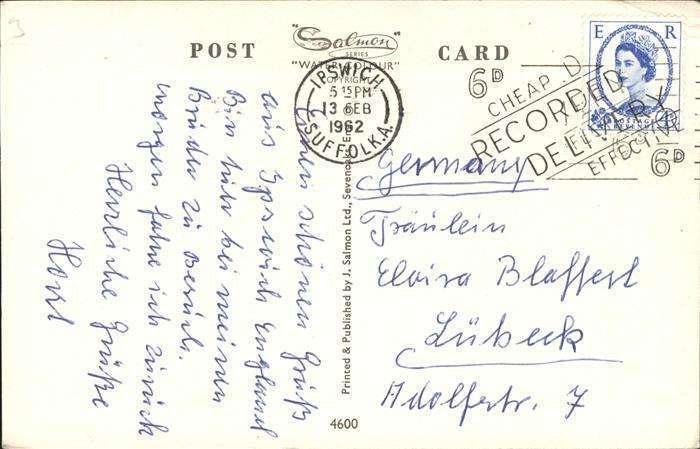 POST CARD
"Salmon
SERIES
"WATER COLOUR"
COPYRIGHT
IPSWICH
5 15 PM
13 FEB
1962
SUFFOLK. A
6D
CHEAP
RECORDED
DELIVERY
EFFECTIVE
6D
E R
POSTAGE
REVENUE
Einen schönen Gruß
aus Ipswich England
Bin hier bei meinem
Bruder zu Besuch.
Morgen fahre ich zurück
Herzliche Grüße
Horst
Printed & Published by J. Salmon Ltd., Sevenoaks,
4600
Germany
Fräulein
Elvira Blaffert
Lübeck
Adolfstr. 7